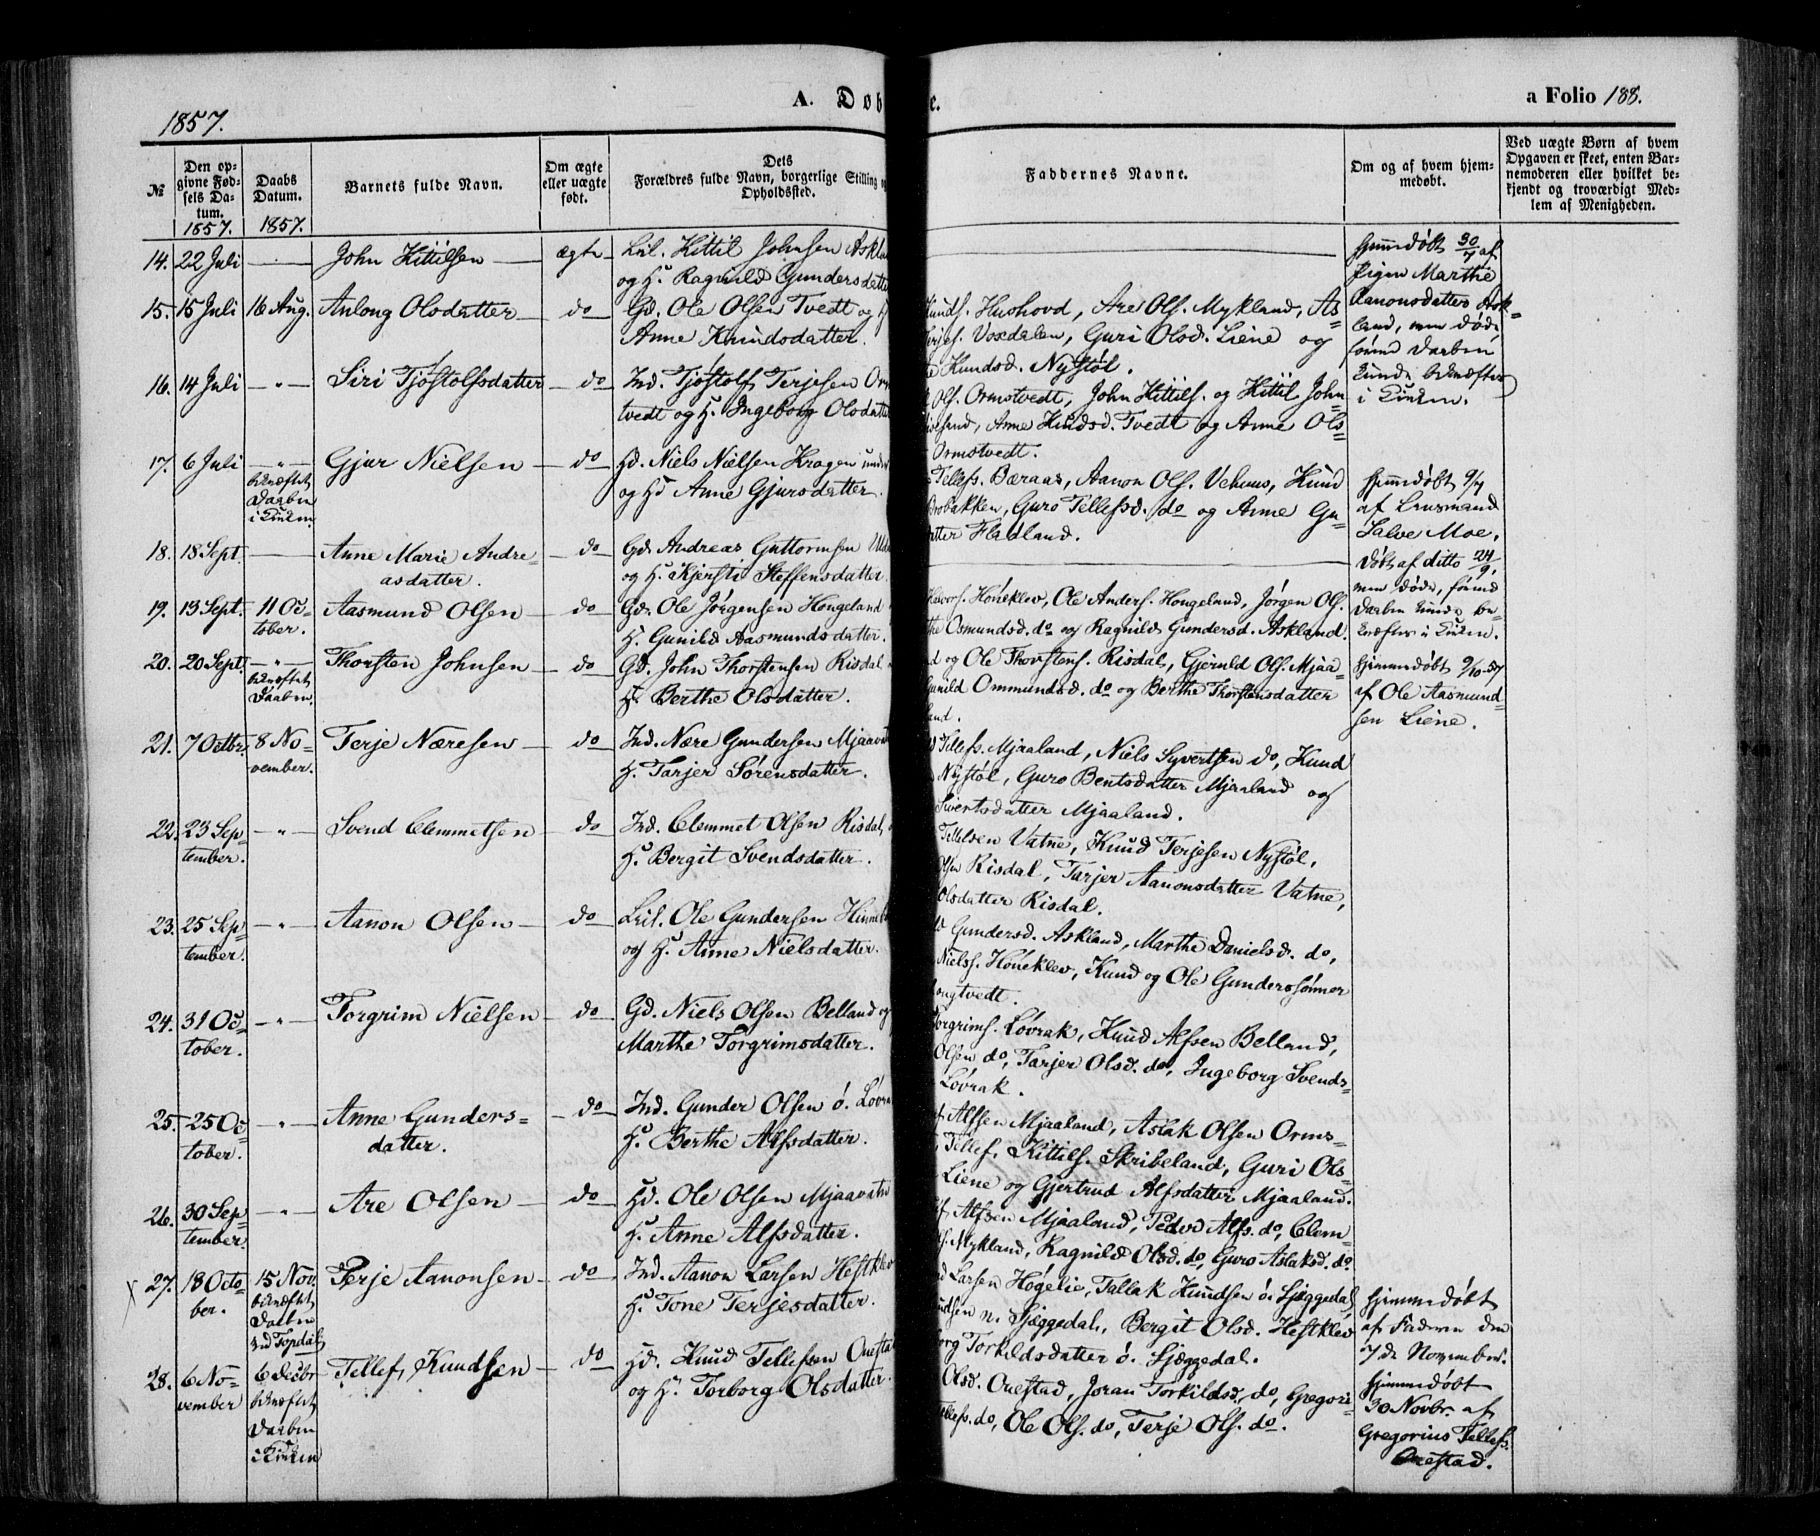 1857.
A. Døb
e.
a Folio 188.
№
Den op-
givne Fød-
sels Da-
tum.
1857.
Daabs
Datum.
1857.
Barnets fulde Navn.
Om ægte
eller uægte
født.
Dets
Forældres fulde Navn, borgerlige Stilling og
Opholdssted.
Faddernes Navne.
Om og af hvem hjem-
medøbt.
Ved uægte Børn af hvem
Opgaven er skeet, enten Bar-
nemoderen eller hvilket be-
kjendt og troværdigt Med-
lem af Menigheden.
14. 22 Juli
John Kittilsen
ægte
Leil. Kittil Johnsen Askla
og H. Ragnild Gundersdatter
Hjemmedøbt 30/7 af
Pigen Marthe
Aanonsdatter Ask-
land, men døde
førend Daaben
kunde bekræftes
i Kirken.
15. 15 Juli 16 Aug.
Anlong Olsdatter
do
Gd. Ole Olsen Tvedt og H
Anne Knudsdatter.
Knuds. Hushovd, Are Ols. Mykland, As-
Terjes. Voxdalen, Guri Olsd. Liene og
e Knudsd. Nystøl.
16. 14 Juli -"-
Siri Tjøstolfsdatter
do
Ind. Tjøstolf Terjesen Orm
tvedt og H. Ingeborg Olsdatter
Ols. Ormstvedt, John Kittils. og Kittil John-
Anne Knudsd. Tvedt og Anne Ols-
Ormstvedt.
17. 6 Juli -"-
bekræftet
Daaben
i Kirken
Gjur Nielsen
do
Hd. Niels Nielsen Kragen under
og Hd Anne Gjursdatter.
Tellefs. Bæraas, Aanon Ols. Vehuus, Knud
Brobakken, Guro Tellefsd. do og Anne Gu-
atter Fladland.
Hjemmedøbt 9/7
af Lensmand
Salve Moe.
18. 18 Sept.
Anne Marie Andre-
asdatter.
do
Gd. Andreas Guttormsen Uld
og H. Kjersti Steffensdatter.
Døbt af ditto 24/9.
men døde, førend
Daaben kunde be-
kræftes i Kirken.
19. 13 Sept. 11 Oc-
tober.
Aasmund Olsen
do
Gd. Ole Jørgensen Hongeland
H. Gunild Aasmundsdatter.
Halvors. Høneklev, Ole Anders. Hongeland, Jørgen Ols.
the Osmundsd. do og Ragnild Gundersd. Askland.
20. 20 Sept. -"-
bekræftet
Daaben.
Thorsten Johnsen
do
Gd. John Thorstensen Risdal
H. Berthe Olsdatter.
d og Ole Thorstens. Risdal, Gjeruld Ols. Mjaa-
Gunild Ommundsd. do og Berthe Thorstensdatter
land.
Hjemmedøbt 9/10-57
af Ole Aasmund-
sen Liene.
21. 7 Octbr. 8 No-
vember.
Terje Næresen
do
Ind. Nære Gundersen Mjaavatn
H. Tarjer Sørensdatter.
Tellefs. Mjaaland, Niels Syvertsen do, Knud
Nystøl, Guro Bentsdatter Mjaaland og
Sivertsdatter Mjaaland.
22. 23 Sep-
tember.
-"-
Svend Clemmetsen
do
Ind. Clemmet Olsen Risdal,
H. Bergit Svendsdatter.
Tellefsen Vatne, Knud Terjesen Nystøl,
Olsen Risdal, Tarjer Aanonsdatter Vatne,
Olsdatter Risdal.
23. 25 Sep-
tember.
-"-
Aanon Olsen
do
Leil. Ole Gundersen Hinneb
og H. Anne Nielsdatter.
Gundersd. Askland, Marthe Danielsd. do,
Niels. Høneklev, Knud og Ole Gunderssønner
ongtvedt.
24. 31 Oc-
tober.
-"-
Torgrim Nielsen
do
Gd. Niels Olsen Belland og
Marthe Torgrimsdatter.
Torgrims. Løvrak, Knud Alfsen Belland,
Olsen do, Tarjer Olsd. do, Ingeborg Svends-
Løvrak.
25. 25 Oc-
tober.
-"-
Anne Gunders-
datter.
do
Ind. Gunder Olsen ø. Løvra
H. Berthe Alfsdatter.
f Alfsen Mjaaland, Aslak Olsen Orms-
Tellef. Kittils. Skribeland, Guri Ols-
Liene og Gjertrud Alfsdatter Mjaaland.
26. 30 Sep-
tember.
-"-
Are Olsen
do
Hd. Ole Olsen Mjaavatn
H. Anne Alfsdatter.
lf Alfsen Mjaaland, Peder Alfs. do, Clem-
Mykland, Ragnild Olsd. do, Guro Aslaksd. do.
x 27. 18 Octo-
ber.
15 Nov.
bekræftet
Daaben
ved Topdal
Terje Aanonsen
do
Ind. Aanon Larsen Heftklev
H. Tone Terjesdatter.
d Larsen Høgelie, Tallak Knudsen ø. Sjæggedal,
Knudsen n. Sjæggedal, Bergit Olsd. Heftklev
org Torkildsdatter ø. Sjæggedal.
Hjemmedøbt
af Faderen den
7de November.
28. 6 No-
vember
6 Decbr
bekræftet
Daaben
i Kirken
Tellef Knudsen
do
Hd. Knud Tellefsen Onesta
og H. Torborg Olsdatter.
Olsd. Onestad, Joran Torkildsd. do, Gregori-
ellefs. do, Ole Ols. do, Terje Ols. do.
Hjemmedøbt
30 Novbr. af
Gregorius Tellefs.
Onestad.